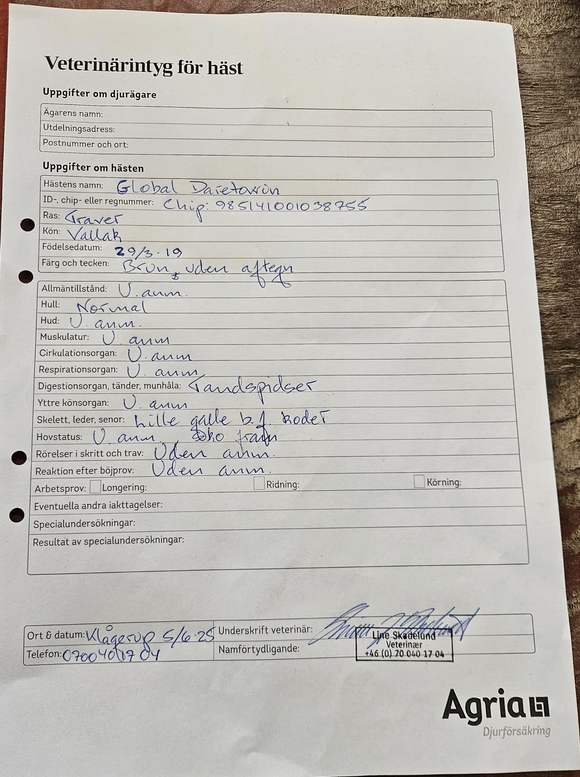 Veterinärintyg för häst
Uppgifter om djurägare
Ägarens namn:
Utdelningsadress:
Postnummer och ort:
Uppgifter om hästen
Hästens namn: Global Daretowin
ID-, chip- eller regnummer: Chip: 985141001038755
Ras: Traver
Kön: Vallak
Födelsedatum: 29/3-19
Färg och tecken: Brun, uden aftegn
Allmäntillstånd: U. anm.
Hull: Normal
Hud: U. anm.
Muskulatur: U. anm
Cirkulationsorgan: U. anm
Respirationsorgan: U. anm.
Digestionsorgan, tänder, munhåla: Tandspidser
Yttre könsorgan: U. anm
Skelett, leder, senor: Lille galle b.f. koder
Hovstatus: U. anm. Sko fram
Rörelser i skritt och trav: Uden anm.
Reaktion efter böjprov: Uden anm.
Arbetsprov: Longering: Ridning: Körning:
Eventuella andra iakttagelser:
Specialundersökningar:
Resultat av specialundersökningar:
Ort & datum: Klågerup 5/6-25 Underskrift veterinär:
Telefon: 0700401704 Namförtydligande:
Line Skadelund
Veterinær
+46 (0) 70 040 17 04
Agria
Djurförsäkring